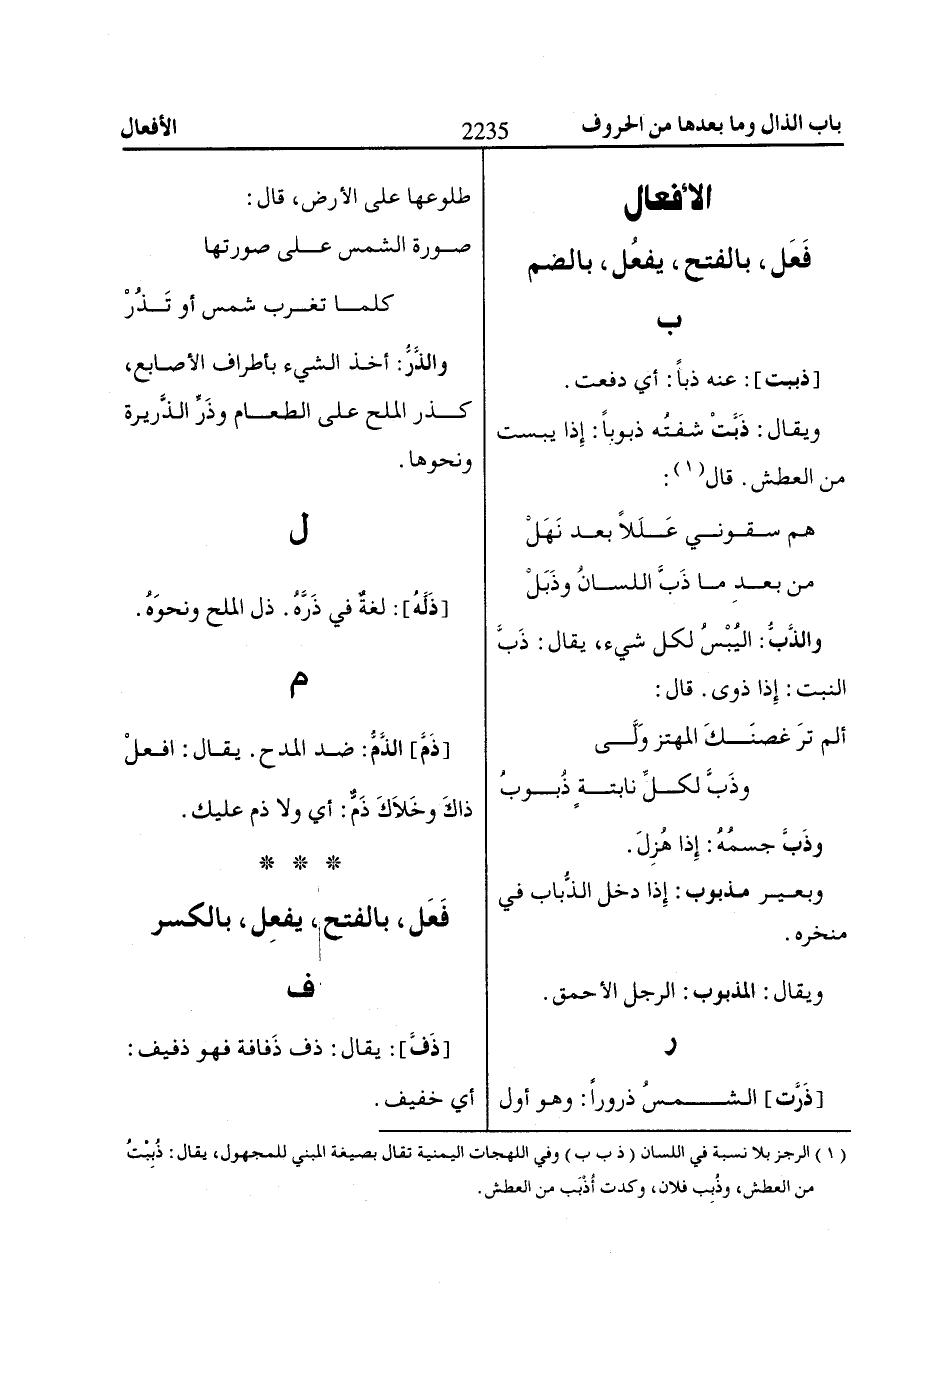 باب الذال وما بعدها من الحروف 2235 الأفعال
الأفعال
فَعَل، بالفتح، يفعُل، بالضم
ب
[ذببت]: عنه ذباً: أي دفعت.
ويقال: ذَبَّتْ شفتُه ذبوباً: إذا يبست
من العطش. قال(١):
هم سقوني عَلَلاً بعد نَهَلْ
من بعد ما ذَبَّ اللسانُ وذَبَلْ
والذَّبُّ: اليُبْسُ لكل شيء، يقال: ذَبَّ
النبت: إذا ذوى. قال:
ألم ترَ غصنَكَ المهتز ولَّى
وذَبَّ لكلِّ نابتةٍ ذُبوبُ
وذَبَّ جسمُهُ: إذا هُزِلَ.
وبعير مذبوب: إذا دخل الذُّباب في
منخره.
ويقال: المذبوب: الرجل الأحمق.
ر
[ذَرَّت] الشمسُ ذروراً: وهو أول
طلوعها على الأرض، قال:
صورة الشمس على صورتها
كلما تغرب شمس أو تَذُرْ
والذَّرُّ: أخذ الشيء بأطراف الأصابع،
كذر الملح على الطعام وذَرِّ الذَّريرة
ونحوها.
ل
[ذَلَّهُ]: لغةٌ في ذَرَّهُ. ذل الملح ونحوَهُ.
م
[ذَمَّ] الذَّمُّ: ضد المدح. يقال: افعلْ
ذاكَ وخَلاَكَ ذَمٌّ: أي ولا ذم عليك.
* * *
فَعَل، بالفتح، يفعِل، بالكسر
ف
[ذَفَّ]: يقال: ذف ذَفافة فهو ذفيف:
أي خفيف.
(١) الرجز بلا نسبة في اللسان (ذ ب ب) وفي اللهجات اليمنية تقال بصيغة المبني للمجهول، يقال: ذُبِبْتُ
من العطش، وذُبِب فلان، وكدت أُذْبَب من العطش.